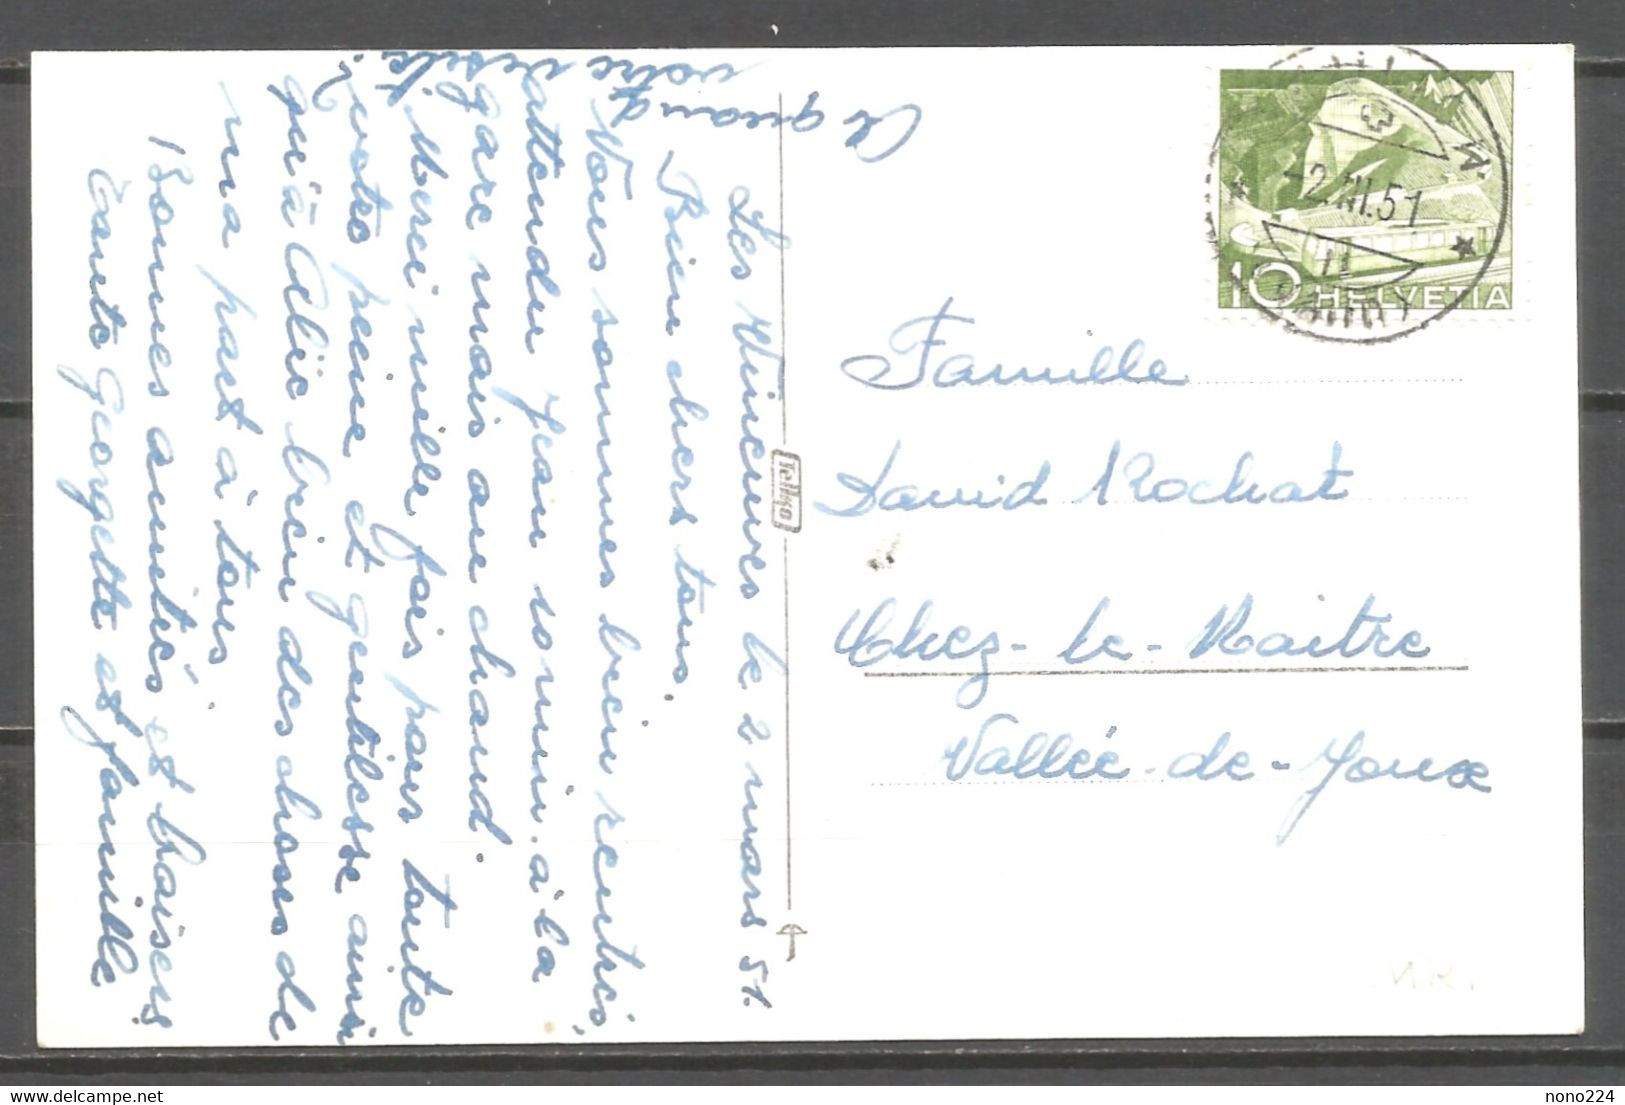 Les Vincuves le 2 mars 51.
Bien chers tous.
Nous sommes bien rentrés,
attendu Jean venu. à la
gare mais au chaud.
Merci mille fois pour toute
votre peine et gentillesse ainsi
qu'à Alic bien des choses de
ma part à tous.
Bonnes amitiés et baisers
Tante Georgette et famille
A quand
votre visite
?
Famille
David Rochat
Chez-le-Maitre
Vallée-de-Joux
10 HELVETIA
-2.III.51
11
Tellko
nono224